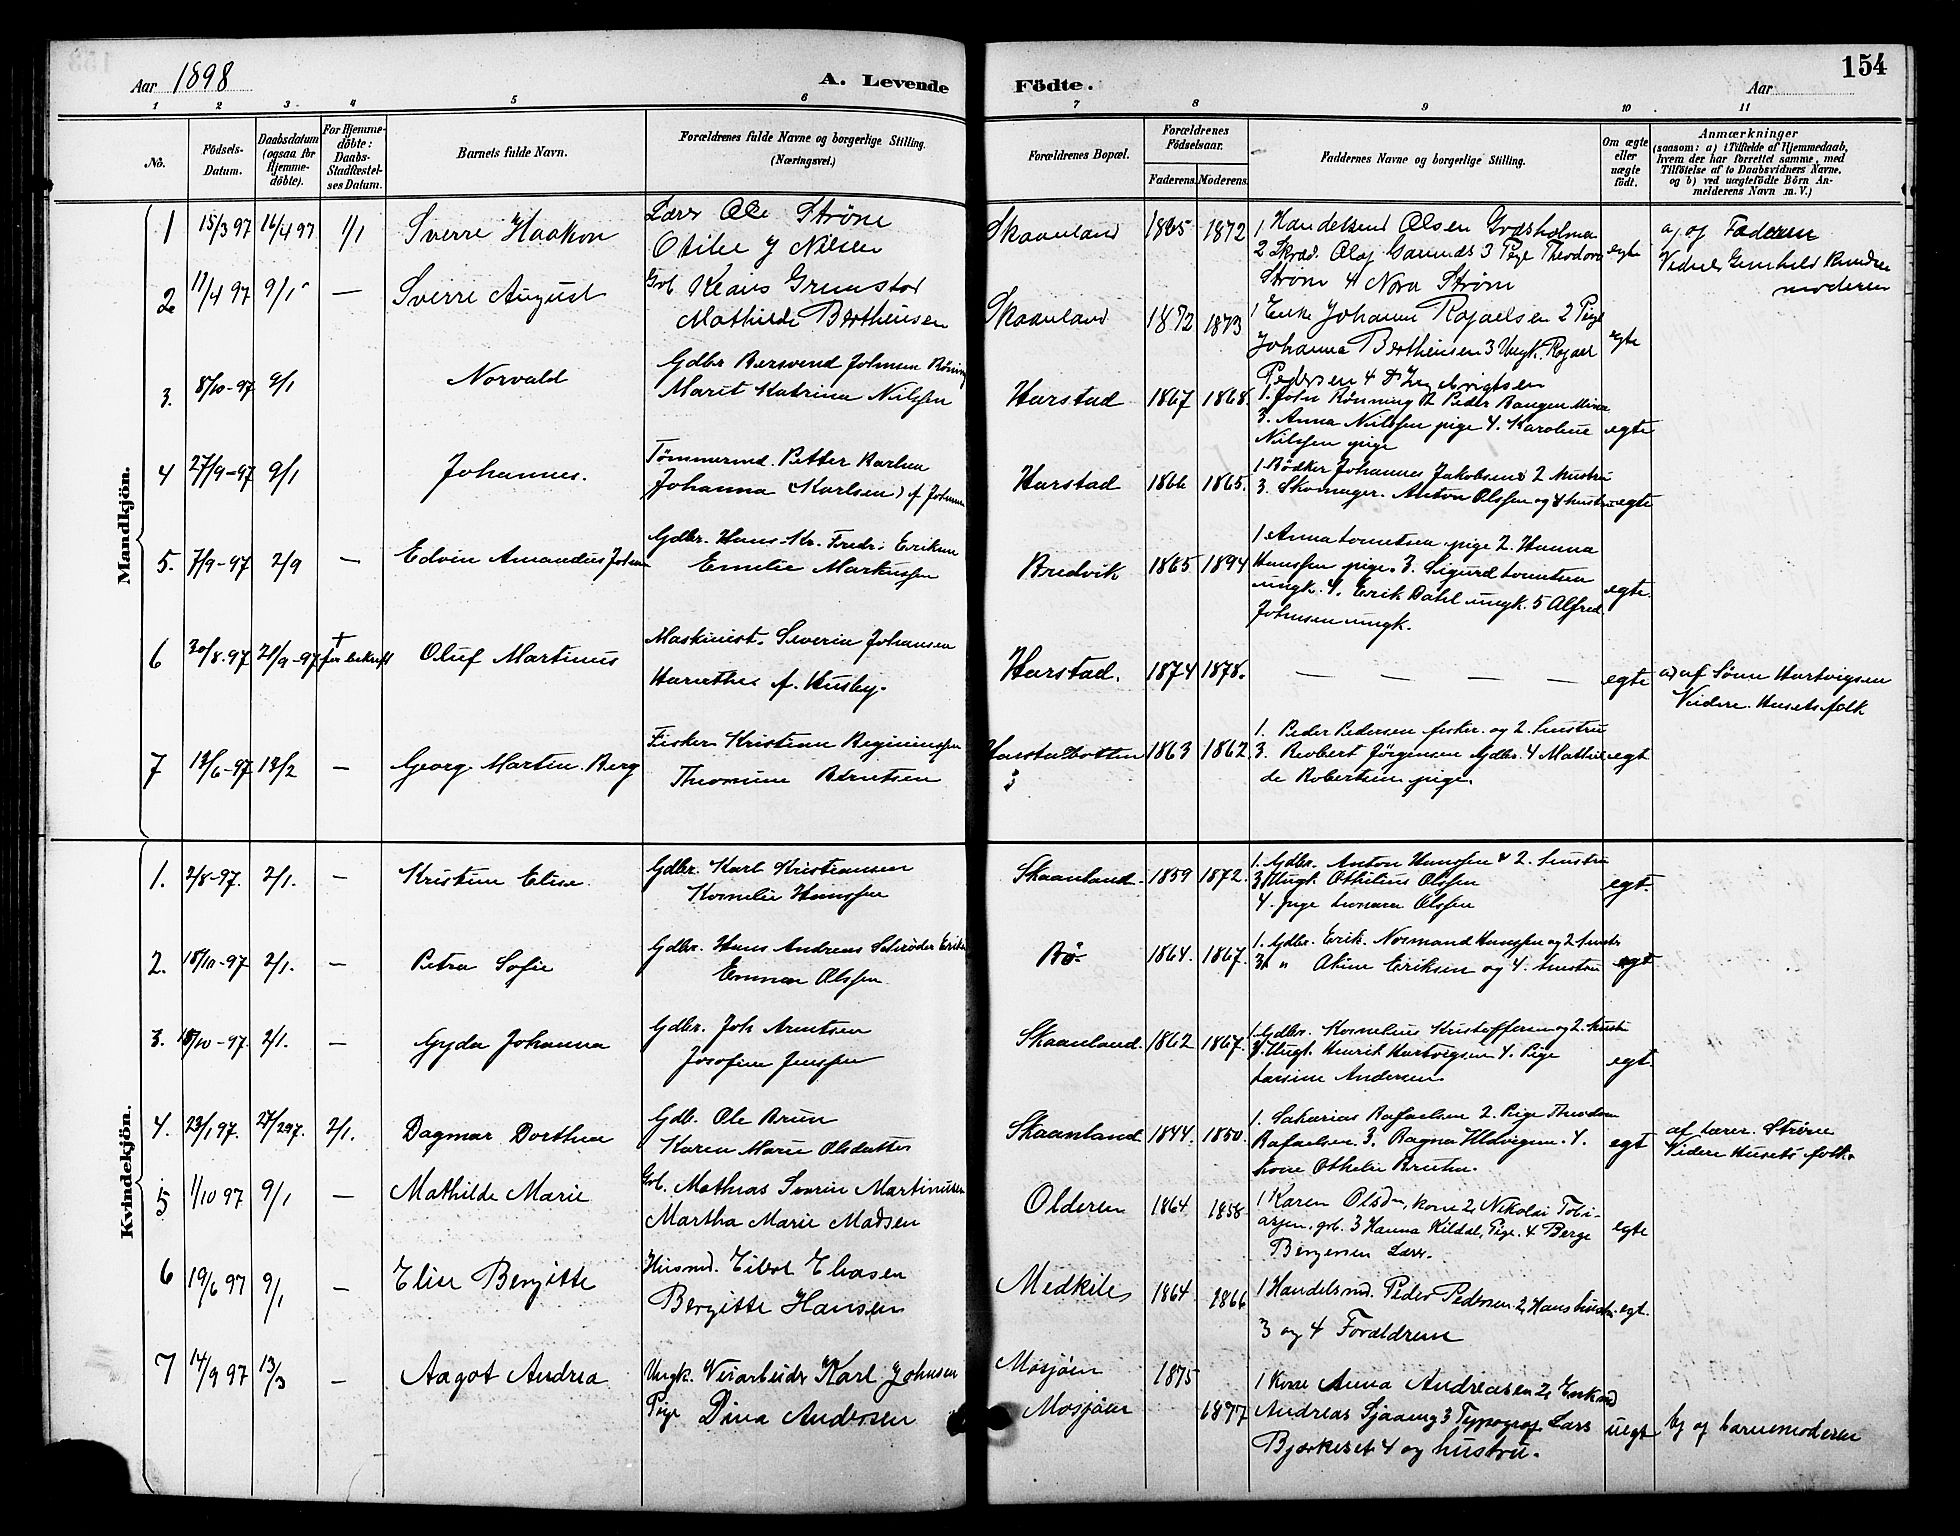 Aar 1898
A. Levende
Födte.
Aar
154
1 2 3 4 5 6 7 8 9 10 11
No.
Födsels-
Datum.
Daabsdatum
(ogsaa for
Hjemme-
döbte).
For Hjemme-
döbte:
Daabs-
Stadfæstel-
ses Datum.
Barnets fulde Navn.
Forældrenes fulde Navne og borgerlige Stilling.
(Næringsvei.)
Forældrenes Bopæl.
Forældrenes
Födselsaar.
Faderens. Moderens.
Faddernes Navne og borgerlige Stilling.
Om ægte
eller
uægte
födt.
Anmærkninger
(saasom: a) i Tilfælde af Hjemmedaab,
hvem der har forrettet samme, med
Tilföielse af to Daabsvidners Navne,
og b) ved uægtefödte Börn An-
melderens Navn m. V.)
Mandkjön.
1 15/3 97 16/4 97 1/1 Sverre Haakon
Lærer Ole Strøm
Otilie J Nilsen
Skaanland 1865 1872
2 Skræd. Olaf 3 Pige Theodora
Strøm 4 Nora Strøm
egte
a, af Faderen
moderen
2 11/4 97 9/1 — Sverre August
Grb. Klaus Grunstad
Mathilde Bertheusen
Skaanland 1872 1873
1 Enke Johanna Rafaelsen 2 Pige
Johanna Bertheusen 3 Ungk. Rafael
Pedersen 4
egte
3. 8/10-97 9/1 Norvald
Gdbr Bersvend Johnsen Röning
Marit Katrina Nilssen
Harstad 1867 1868.
1. John Rönning 2 Peder Bangen
3. Anna Nilssen pige 4. Karoline
Nilssen pige
egte
4 27/9-97 9/1 Johannes.
Tømmermd. Petter Karlsen
Johanna (Karlsen) f.
Harstad 1866 1865.
1 Bödker Johannes Jakobsen 2 hustru
3. Skomager. Anton Olssen og 4 hustru
egte
5. 7/9-97 2/9 — Edvin Amandus
Gdbr. Hans Kr. Fredr. Eriksen
Emelie Markussen
Bredvik 1865 1894
1 Anna Lorentsen pige 2. Hanna
Hanssen pige. 3. Sigurd Lorentsen
ungk. 4. Erik Dahl ungk. 5 Alfred
Johnsen ungk.
egte.
6 20/8-97 21/9-97 † før bekreft Oluf Martinus
Maskinist. Severin Johansen
f. Husby.
Harstad. 1874 1878.
— — — —
egte
a) af Sönn Hartvigsen
Vidne. Husets folk
7 12/6-97 12/2 — Georg. Martin. Berg
Fisker Kristian
Thomine Berntsen
Harstadbotten 1863 1862.
1. Peder Pedersen fisker. og 2. hustru
3. Robert Jörgensen Gdbr. 4 Mathil-
de Robertsen pige.
egt
Kvindekjön.
1. 2/8-97. 2/1. — Kristine Elise.
Gdbr. Karl Kristiansen
Kornelie Hanssen
Skaanland 1859 1872.
1. Gdbr. Anton Hanssen & 2. hustru
3 Ungk. Othelius Olssen
4. pige Olssen
egt.
2. 18/10-97 2/1. — Petra Sofie
Gdbr. Hans Andreas Schröder
Emma Olssen
Bö 1864. 1867.
1. Gdbr. Erik. Normand Hanssen og 2 hustr
3 " Eriksen og 4. hustru
egt
3. 15/10-97. 2/1. — Gyda Johanna
Gdbr. Joh Arntsen
Josefine Jenssen
Skaanland 1862 1867.
1. Gdbr. Kornelius Kristoffersen og 2. hust
3. Ungk. Henrik Hartvigsen 4. Pige
Larsine Andersen
egt.
4. 23/1 97. 27/2 97. 2/1. Dagmar Dorthea
Gdb. Ole Brun
Karen Marie Olsdatter
Skaanland 1844. 1850.
1. Sakarias Rafaelsen 2. Pige
Rafaelsen. 3. Ragna 4.
kone Othelie
egt
af Lærer. Strøm
Vidne Husets folk
5 1/10 97 9/1 — Mathilde Marie
Grb. Mathias Severin Martinusen
Martha Marie Madsen
Olderen 1864 1858
1 Karen Olsdr, kone 2, Nikolai Tobi-
asjen, grb. 3 Hanna Kildal, Pige. 4 Berge
Bergersen Lærer.
egte
6 19/6 97 9/1 — Elise Bergitte
Husmd. Eilert Eliasen
Bergitte Hansen
Medkile 1864 1866
1 Handelsmd. Peder Pedersen 2, Hans hustru
3 og 4 Forældrene
egt.
7 14/9 97 13/3 — Aagot Andrea
Ungk. Karl Johnsen
Pige Dina Andersen
Mosjøen 1875
Mosjøen 1877
1 Kone Anna Andreasen 2, Enkemd
Andreas 3 Typograf Lars
Bjerkeset 4 og hustru.
uegt
b, af barnemoderen